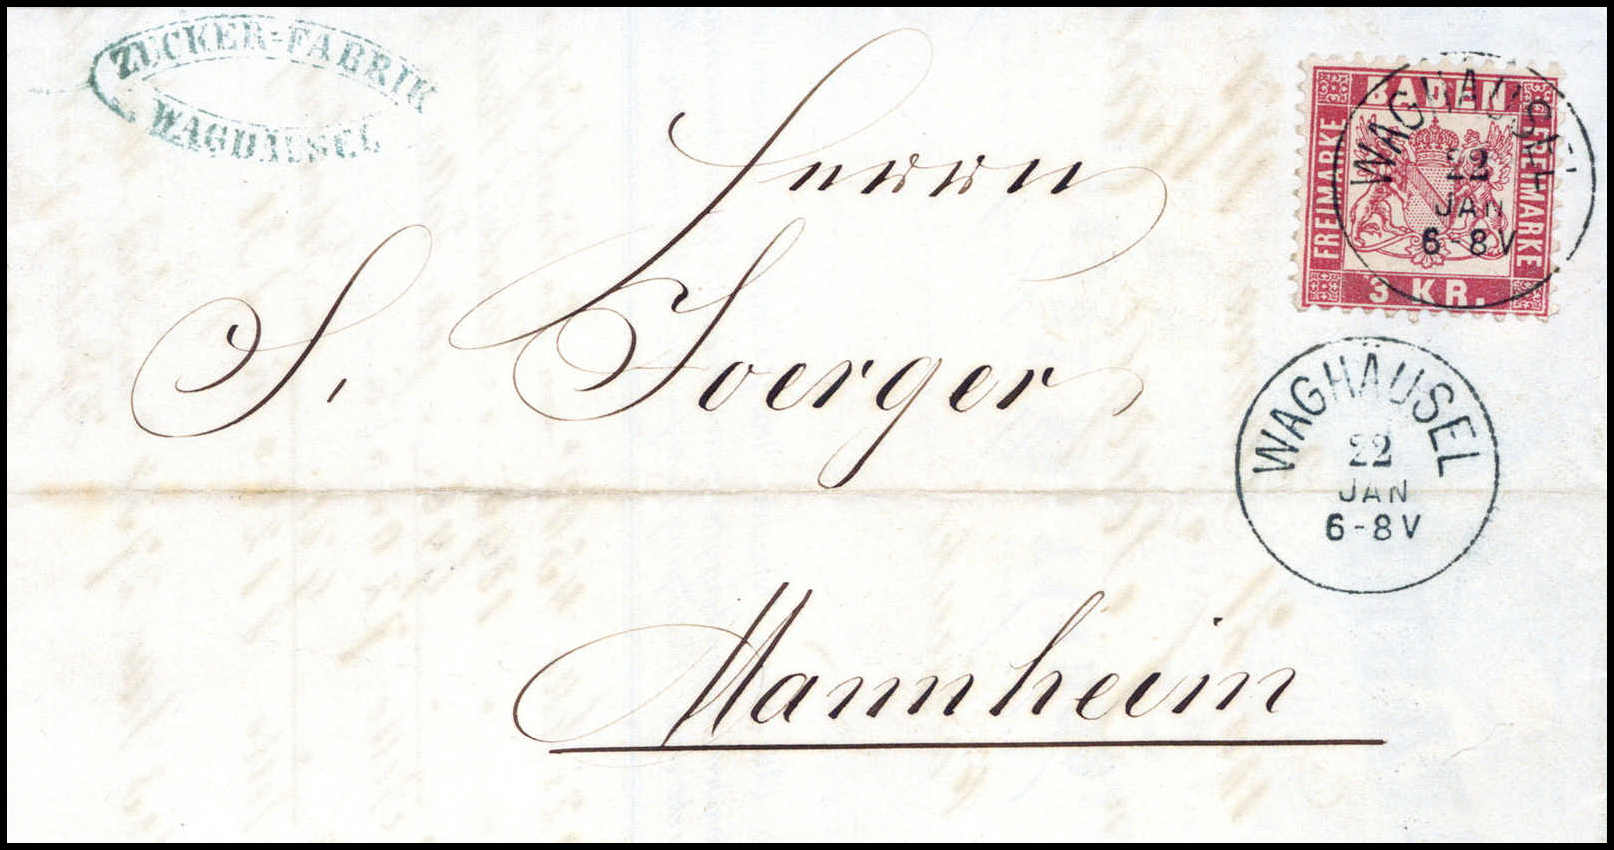 ZUCKER-FABRIK
WAGHÄUSEL
BADEN
FREIMARKE
FREIMARKE
3 KR.
WAGHÄUSEL
22
JAN
6-8V
Herrn
S. Joerger
WAGHÄUSEL
22
JAN
6-8V
Mannheim